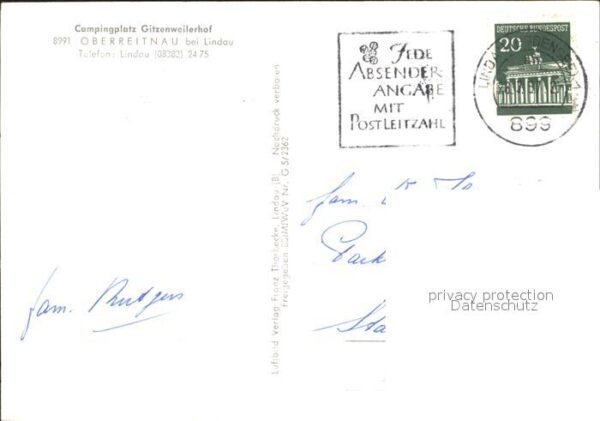 Campingplatz Gitzenweilerhof
8991 OBERREITNAU bei Lindau
Telefon: Lindau (08382) 2475
JEDE
ABSENDER-
ANGABE
MIT
POSTLEITZAHL
DEUTSCHE BUNDESPOST
20
LINDAU
899
Luftbild Verlag Franz Thorbecke, Lindau (B) Nachdruck verboten
Freigegeben Nr. G 5/2362
Fam.
Park
Sta
Fam. Rutgers
privacy protection
Datenschutz